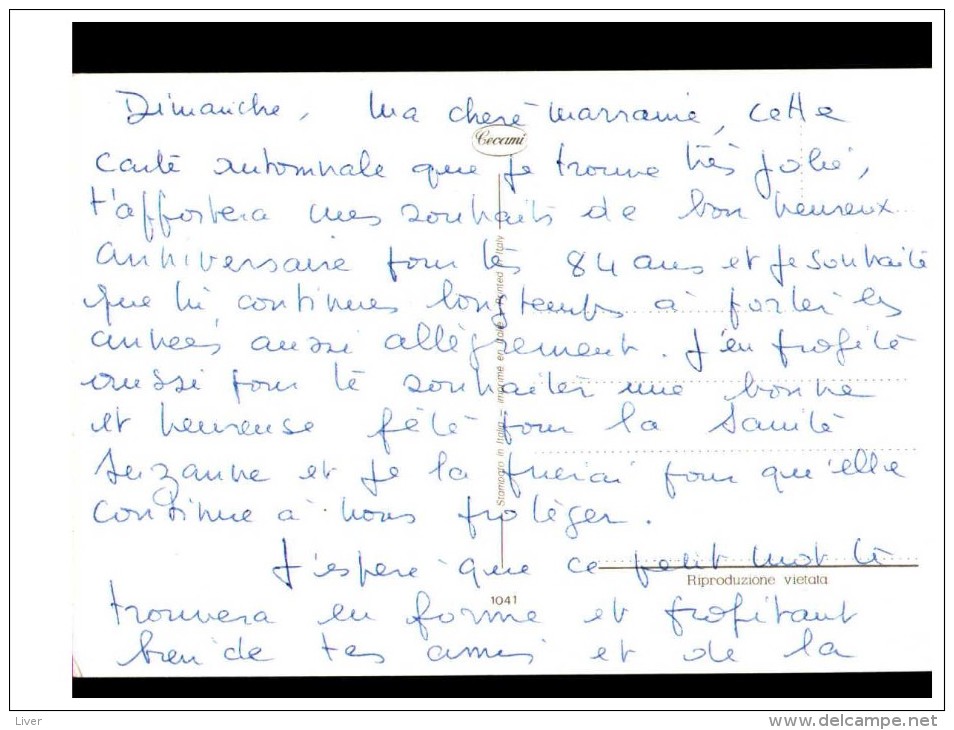 Dimanche, Ma chère marraine, cette
Cecami
carte automnale que je trouve très jolie,
t'apportera mes souhaits de bon heureux
anniversaire pour tes 84 ans et je souhaite
que tu continues longtemps à porter les
années aussi allègrement. J'en profite
aussi pour te souhaiter une bonne
et heureuse fête pour la Sainte
Suzanne et je la prierai pour qu'elle
continue à nous protéger.
J'espère que ce petit mot te
trouvera en forme et profitant
bien de tes amis et de la
Stampato in Italia - Imprimé en Italie - Printed in Italy
Riproduzione vietata
1041
Liver
www.delcampe.net